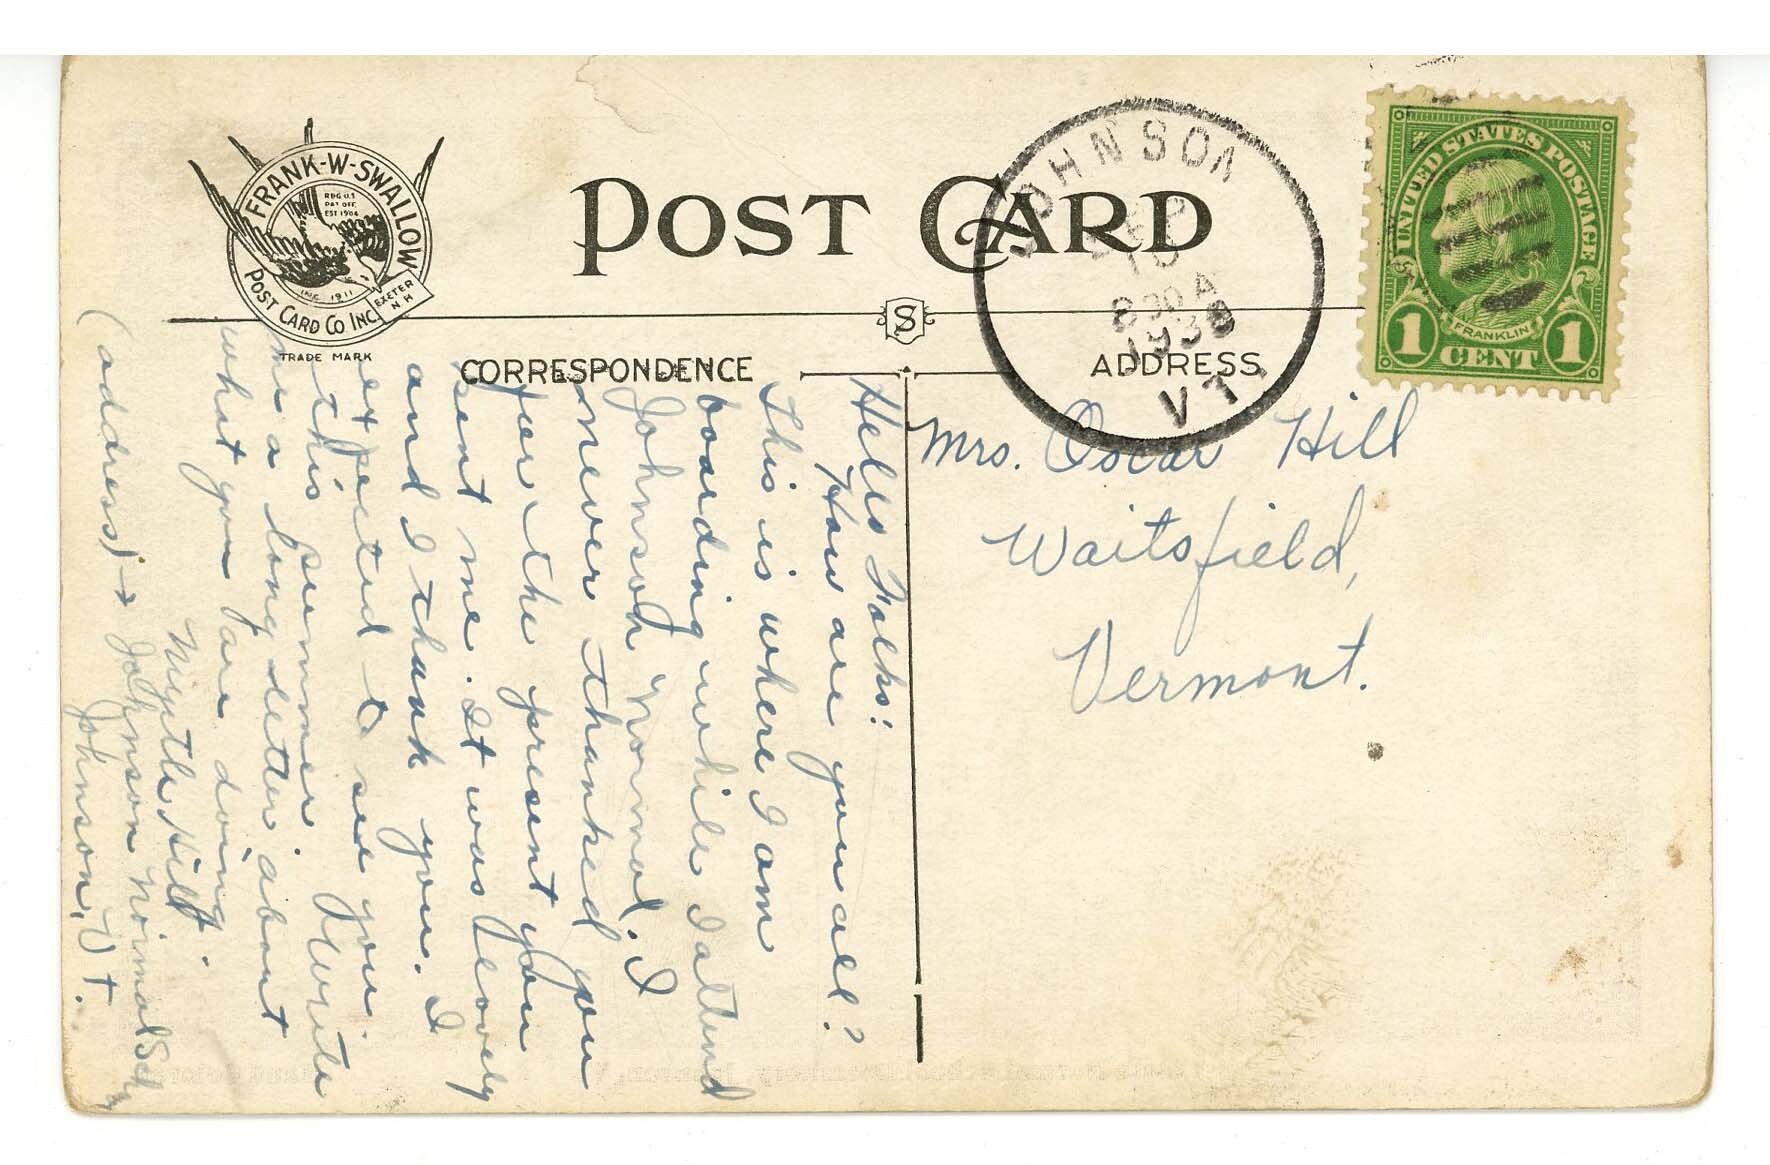 FRANK-W-SWALLOW
REG U.S
PAT OFF.
EST 1904
INC. 1911
POST CARD CO INC.
EXETER
N H
TRADE MARK
POST CARD
S
CORRESPONDENCE
ADDRESS
JOHNSON
SEP
10
8 30 A
VT.
UNITED STATES POSTAGE
FRANKLIN
1 CENT 1
Hello Folks:
How are you all?
This is where I am
boarding while I attend
Johnson Normal. I
never thanked you
for the present you
sent me. It was lovely
and I thank you. I
expected to see you
this summer. Write
me a long letter about
what you are doing.
Myrtle Hill
(address) → Johnson Normal
Johnson, Vt.
Mrs. Oscar Hill
Waitsfield,
Vermont.